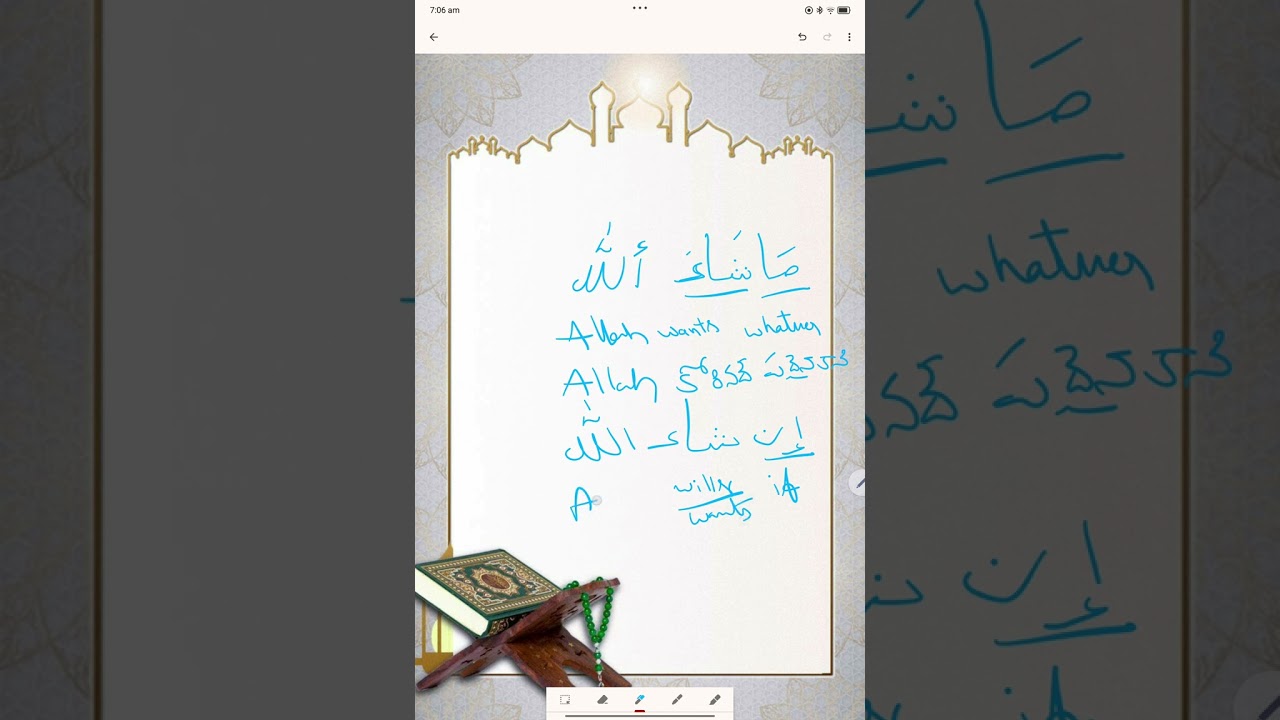 7:06 am
مَا شَاءَ أللّٰه
Allah wants whatever
Allah కోరినదే
إن شاء اللّٰه
A wills if
wants